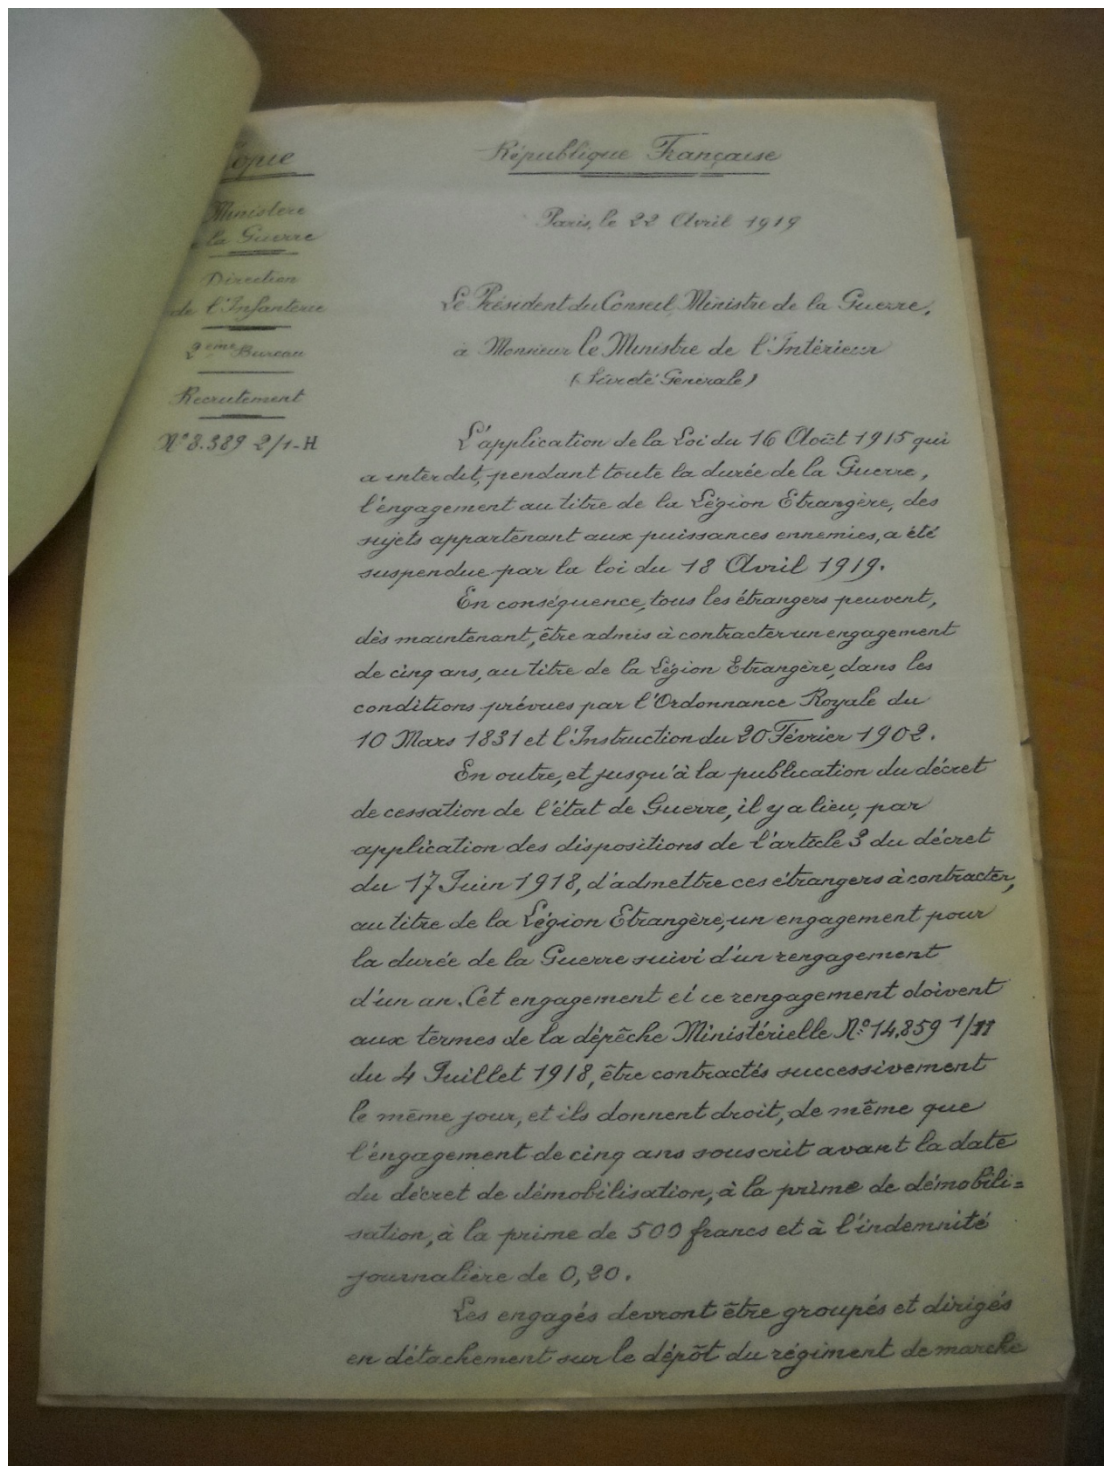 Copie
Ministère
de la Guerre
Direction
de l'Infanterie
2ème Bureau
Recrutement
N° 8.389 2/1-H
République Française
Paris, le 22 Avril 1919
Le Président du Conseil, Ministre de la Guerre,
à Monsieur le Ministre de l'Intérieur
(Sûreté Générale)
L'application de la Loi du 16 Août 1915 qui
a interdit, pendant toute la durée de la Guerre,
l'engagement au titre de la Légion Etrangère, des
sujets appartenant aux puissances ennemies, a été
suspendue par la loi du 18 Avril 1919.
En conséquence, tous les étrangers peuvent,
dès maintenant, être admis à contracter un engagement
de cinq ans, au titre de la Légion Etrangère, dans les
conditions prévues par l'Ordonnance Royale du
10 Mars 1831 et l'Instruction du 20 Février 1902.
En outre, et jusqu'à la publication du décret
de cessation de l'état de Guerre, il y a lieu, par
application des dispositions de l'article 3 du décret
du 17 Juin 1918, d'admettre ces étrangers à contracter,
au titre de la Légion Etrangère, un engagement pour
la durée de la Guerre suivi d'un rengagement
d'un an. Cet engagement et ce rengagement doivent
aux termes de la dépêche Ministérielle N° 14.859 1/11
du 4 Juillet 1918, être contractés successivement
le même jour, et ils donnent droit, de même que
l'engagement de cinq ans souscrit avant la date
du décret de démobilisation, à la prime de démobili=
sation, à la prime de 500 francs et à l'indemnité
journalière de 0,20.
Les engagés devront être groupés et dirigés
en détachement sur le dépôt du régiment de marche